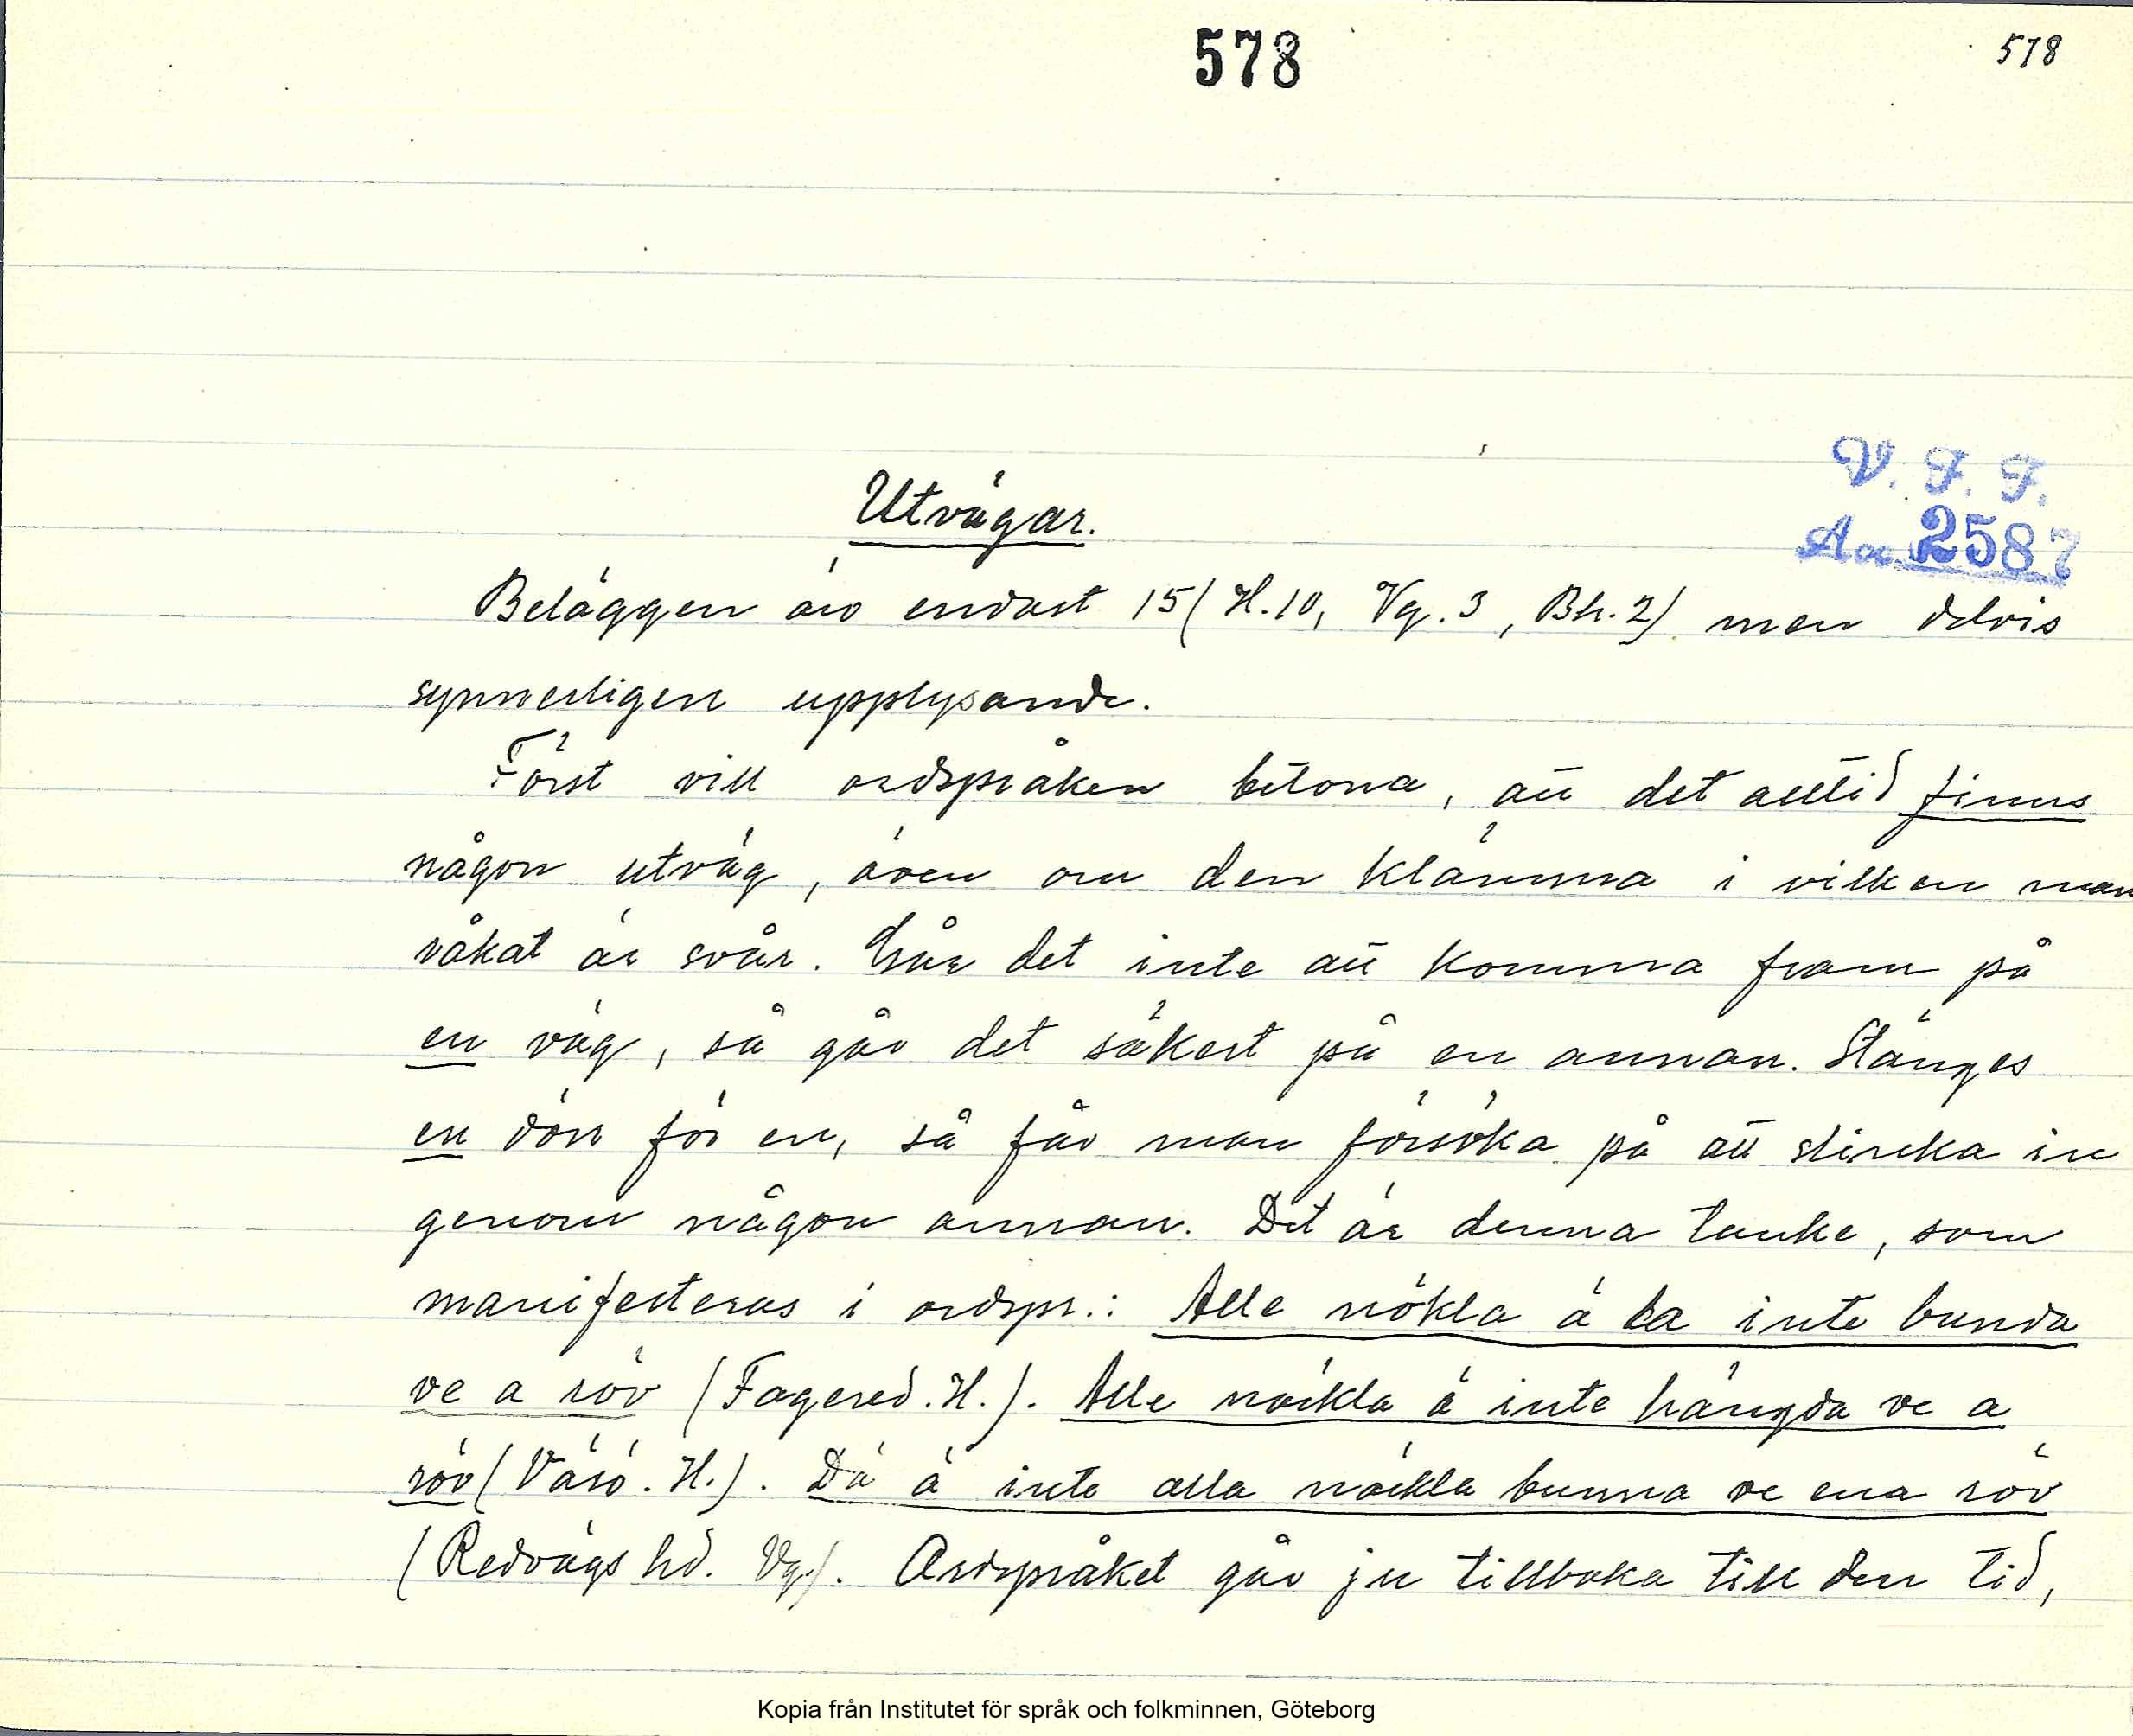 578
578
V. F. F.
Acc. 2587
Utvägar.
Beläggen äro endast 15 (H. 10, Vg. 3, Bh. 2) men delvis
synnerligen upplysande.
Först vill ordspråken betona, att det alltid finns
någon utväg, även om den klämma i vilken man
råkat är svår. Går det inte att komma fram på
en väg, så går det säkert på en annan. Stänges
en dörr för en, så får man försöka på att slinka in
genom någon annan. Det är denna tanke, som
manifesteras i ordspr.: Alle nökla ä ba inte bunda
ve a röv (Fagered. H.). Alle nöckla ä inte hängda ve a
röv (Värö. H.). Dä ä inte alla nöckla bunna ve ena röv
(Redvägs hd. Vg.). Ordspråket går ju tillbaka till den tid,
Kopia från Institutet för språk och folkminnen, Göteborg